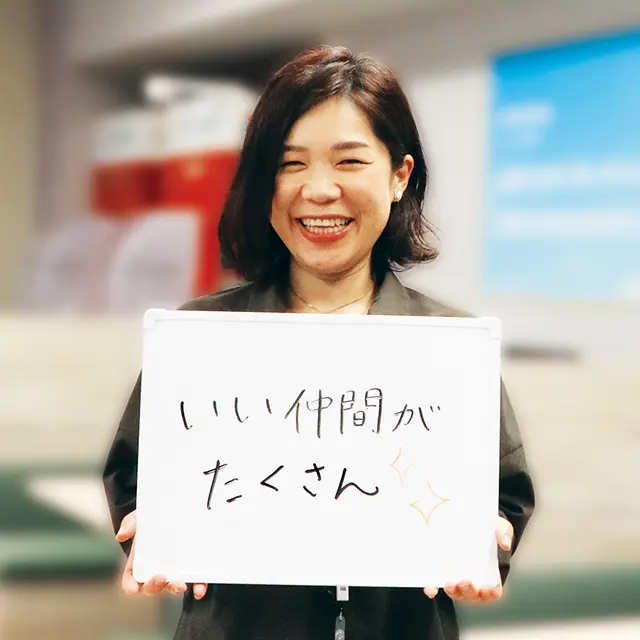 いい仲間が
たくさん